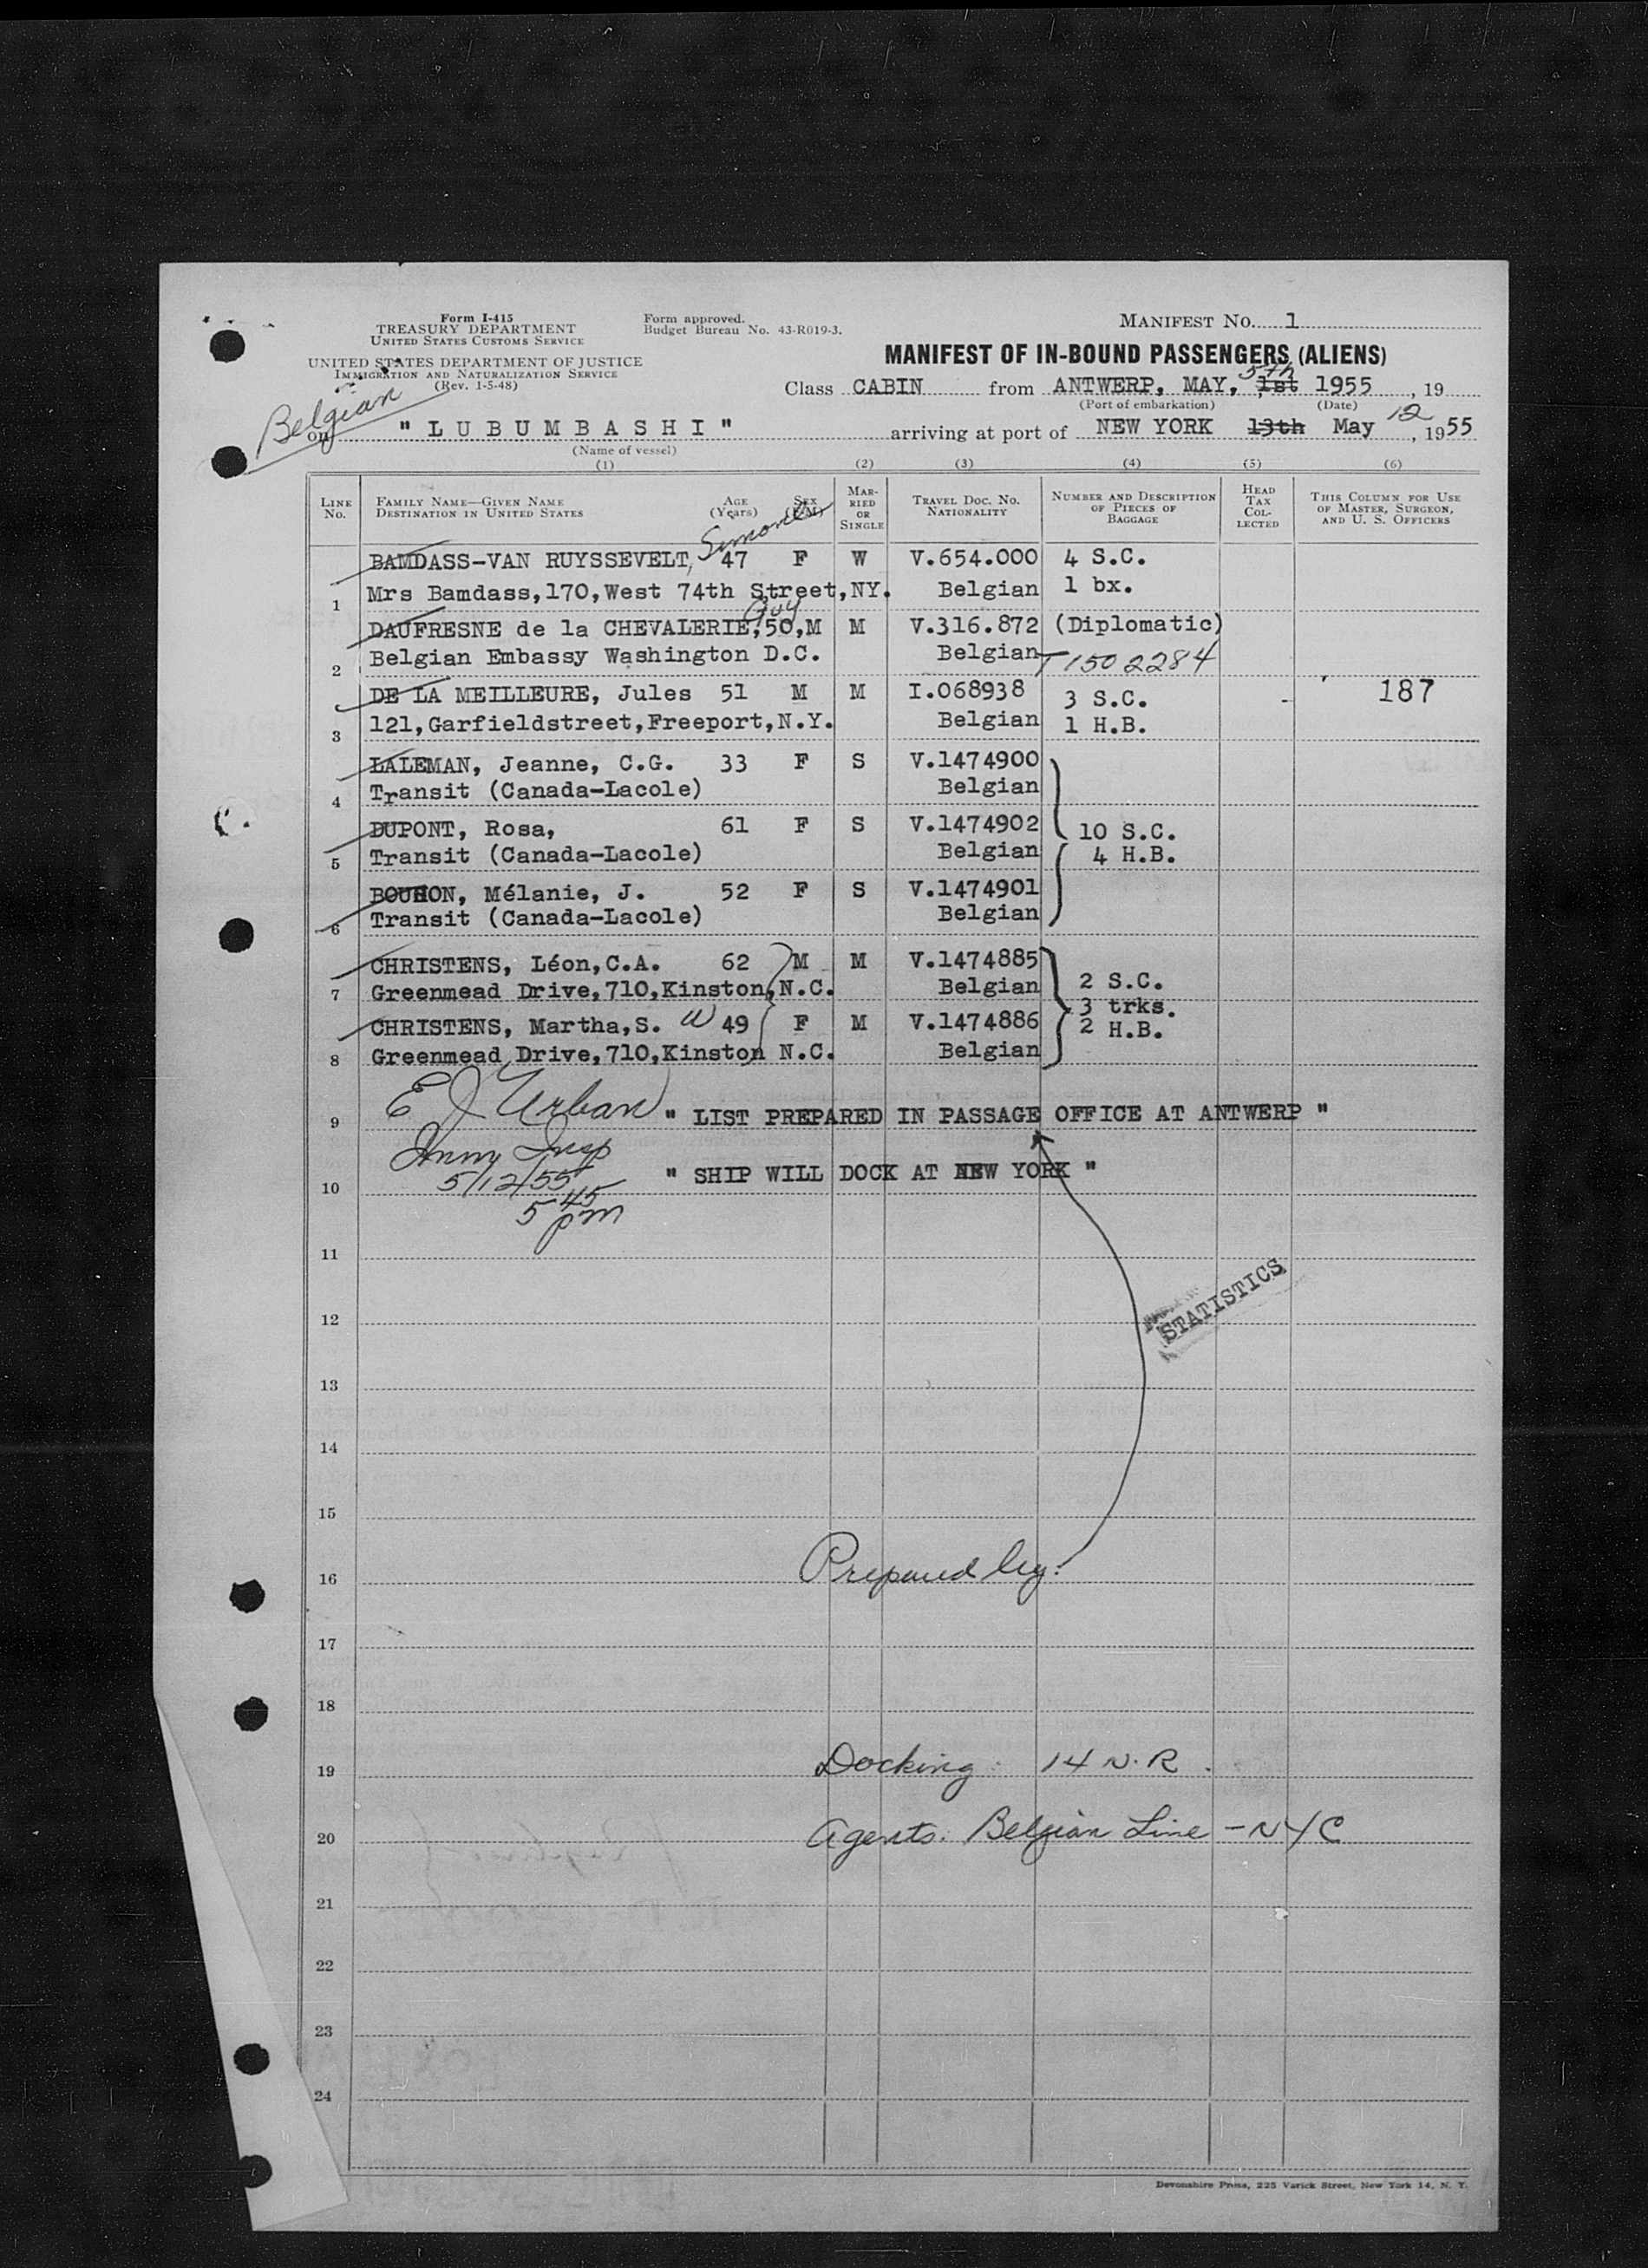 Form I-415
TREASURY DEPARTMENT
UNITED STATES CUSTOMS SERVICE
UNITED STATES DEPARTMENT OF JUSTICE
IMMIGRATION AND NATURALIZATION SERVICE
(Rev. 1-5-48)
Form approved.
Budget Bureau No. 43-R019-3.
MANIFEST NO. 1
MANIFEST OF IN-BOUND PASSENGERS (ALIENS)
5th
Class CABIN from ANTWERP, MAY, 1st 1955 , 19
(Port of embarkation) (Date)
Belgian
on " L U B U M B A S H I " arriving at port of NEW YORK 13th May 12, 1955
(Name of vessel)
(1) (2) (3) (4) (5) (6)
LINE No. FAMILY NAME—GIVEN NAME DESTINATION IN UNITED STATES AGE (Years) SEX (F-M) MARRIED OR SINGLE TRAVEL DOC. NO. NATIONALITY NUMBER AND DESCRIPTION OF PIECES OF BAGGAGE HEAD TAX COLLECTED THIS COLUMN FOR USE OF MASTER, SURGEON, AND U. S. OFFICERS
Simone
BAMDASS-VAN RUYSSEVELT, 47 F W V.654.000 4 S.C.
1 Mrs Bamdass,170,West 74th Street,NY. Belgian 1 bx.
Guy
DAUFRESNE de la CHEVALERIE,50,M M V.316.872 (Diplomatic)
2 Belgian Embassy Washington D.C. Belgian T1502284
DE LA MEILLEURE, Jules 51 M M I.068938 3 S.C. - 187
3 121,Garfieldstreet,Freeport,N.Y. Belgian 1 H.B.
LALEMAN, Jeanne, C.G. 33 F S V.1474900
4 Transit (Canada-Lacole) Belgian
DUPONT, Rosa, 61 F S V.1474902 10 S.C.
5 Transit (Canada-Lacole) Belgian 4 H.B.
BOUHON, Mélanie, J. 52 F S V.1474901
6 Transit (Canada-Lacole) Belgian
CHRISTENS, Léon,C.A. 62 M M V.1474885 2 S.C.
7 Greenmead Drive,710,Kinston,N.C. Belgian 3 trks.
CHRISTENS, Martha,S. W 49 F M V.1474886 2 H.B.
8 Greenmead Drive,710,Kinston N.C. Belgian
E J Urban
9 " LIST PREPARED IN PASSAGE OFFICE AT ANTWERP "
Imm Insp
5/12/55
10 " SHIP WILL DOCK AT NEW YORK "
5 45 pm
11
STATISTICS
12
13
14
15
16 Prepared by:
17
18
19 Docking: 14 N.R.
20 Agents: Belgian Line - NYC
21
22
23
24
Devonshire Press, 225 Varick Street, New York 14, N. Y.